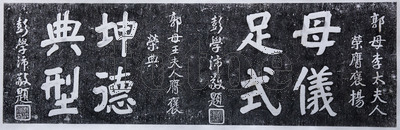 郭母李太夫人
榮膺褒揚
母儀
足式
彭學沛敬題
郭母王夫人膺褒
榮典
坤德
典型
彭學沛敬題